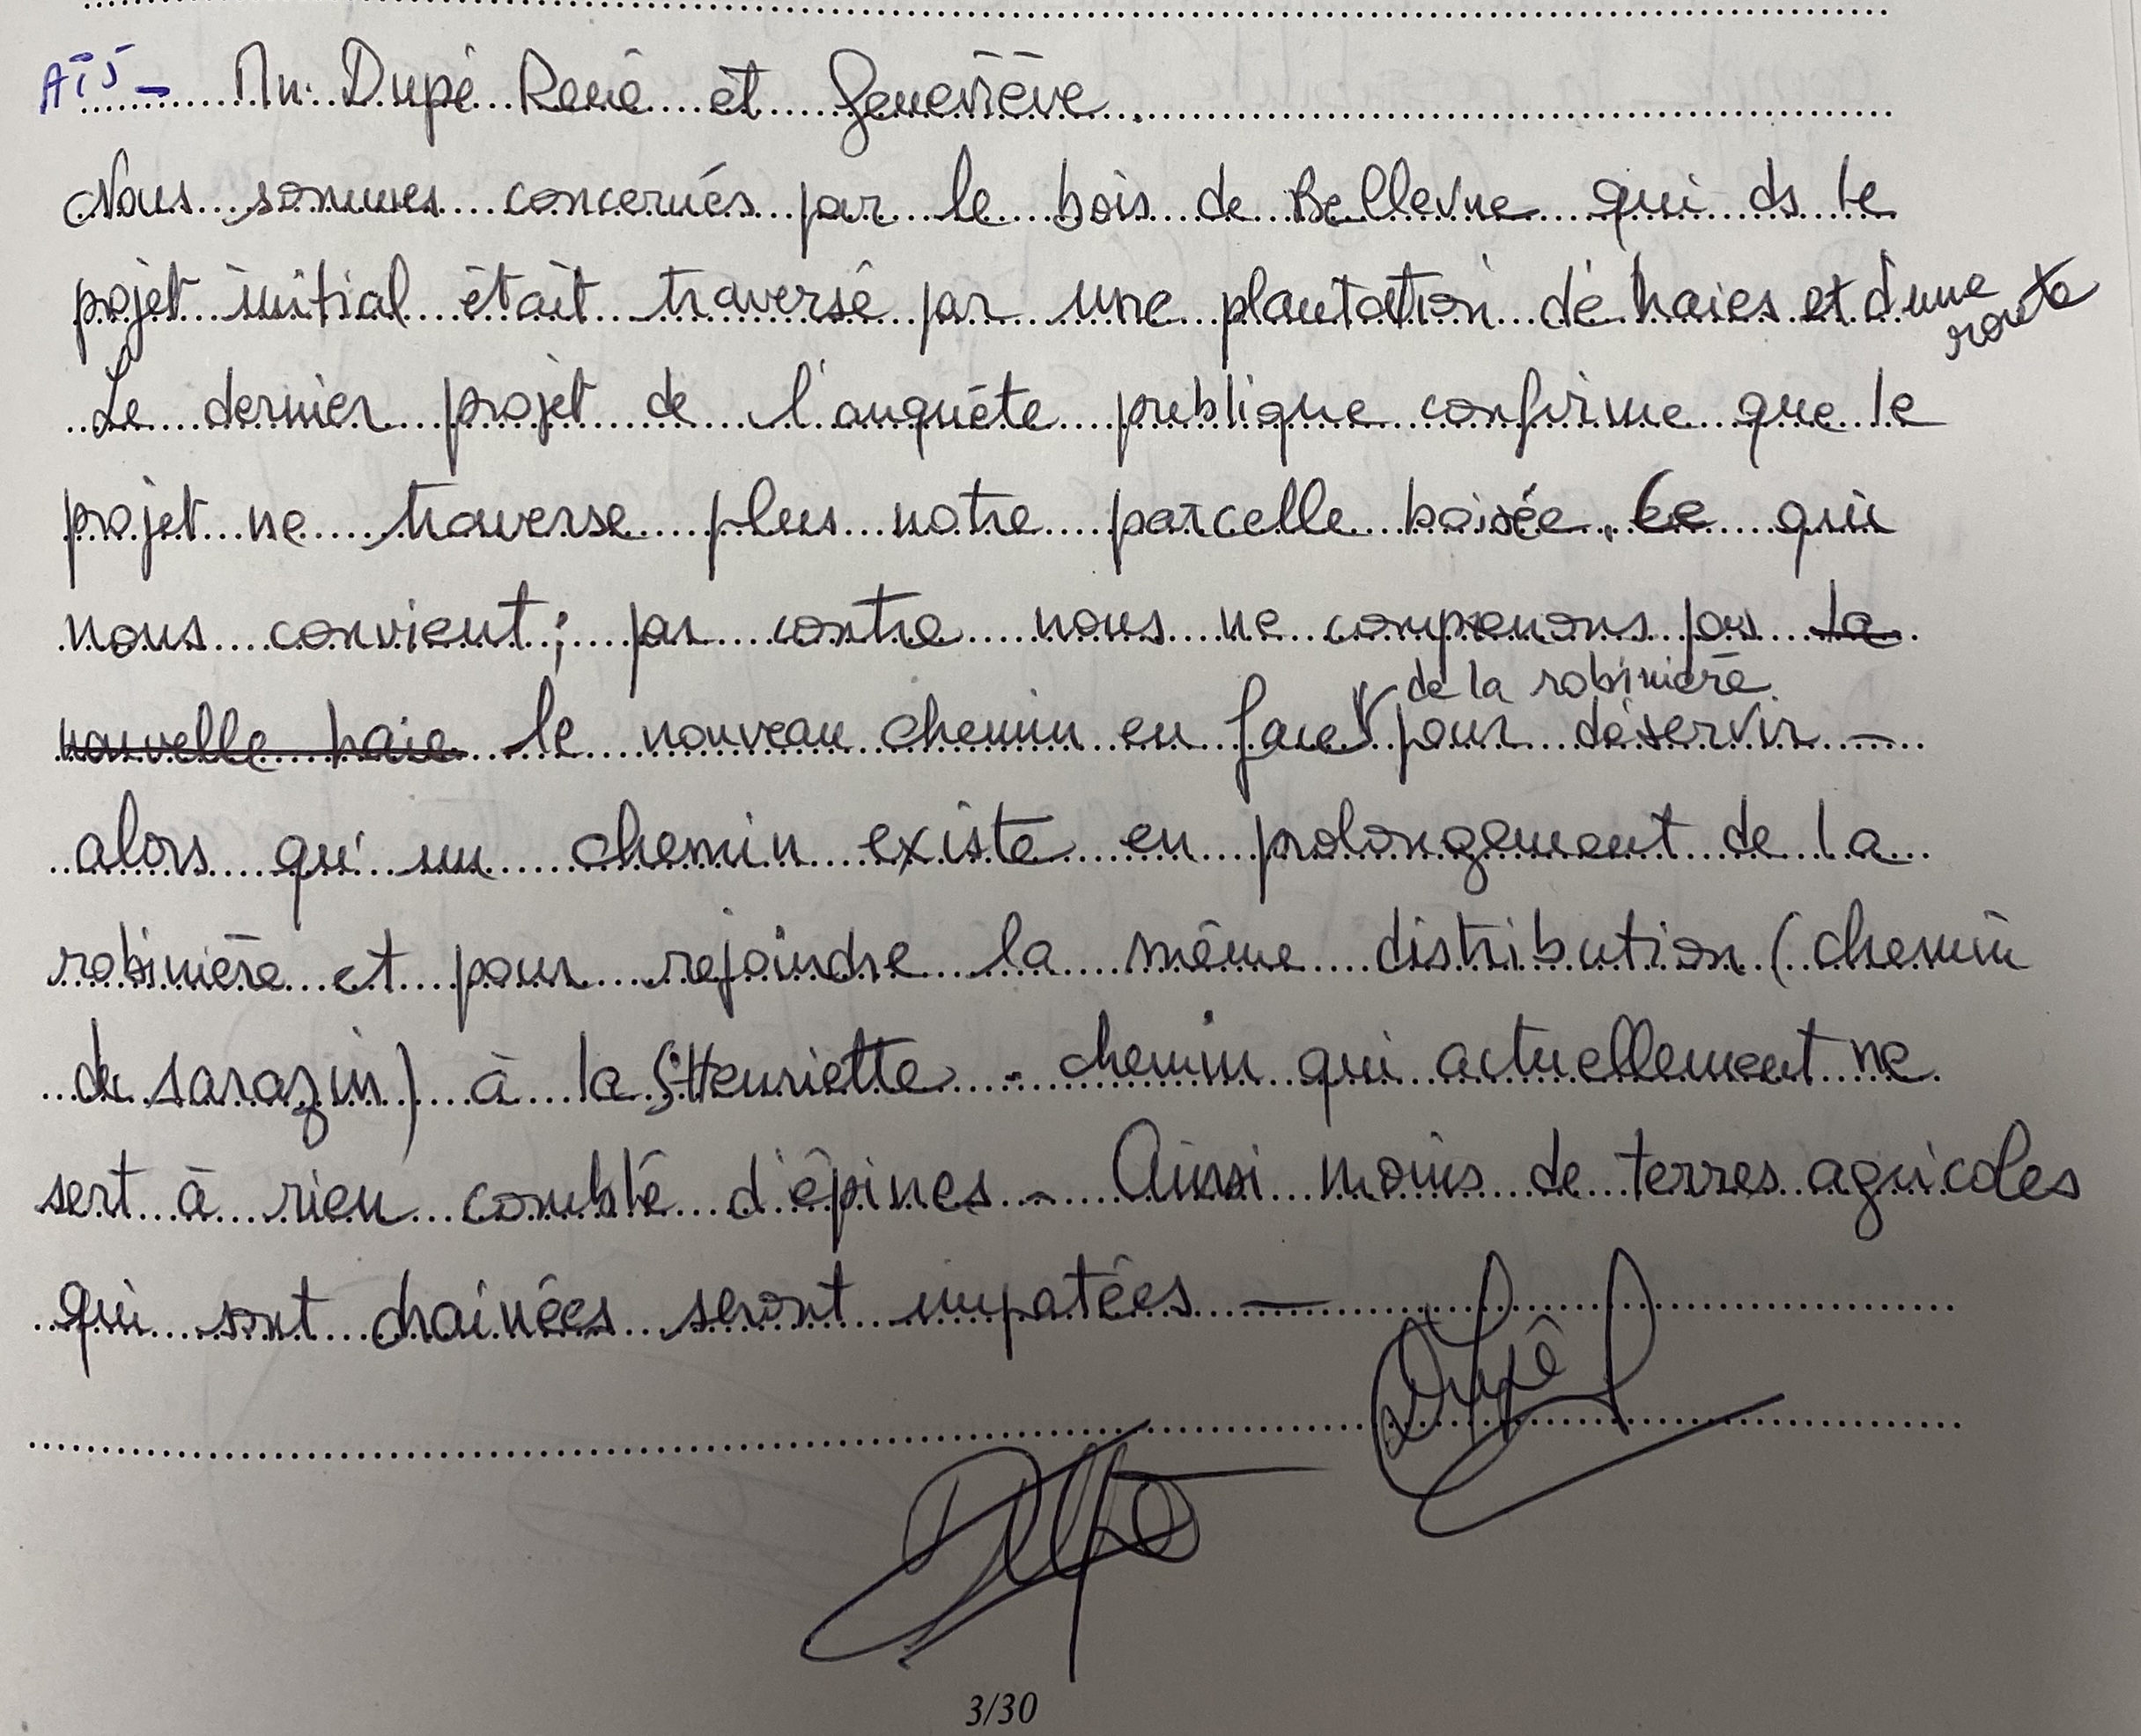 AI5 - Mr. Dupé René et Geneviève.
Nous sommes concernés par le bois de Bellevue qui ds le
projet initial était traversé par une plantation de haies et d'une
route
Le dernier projet de l'anquête publique confirme que le
projet ne traverse plus notre parcelle boisée. Ce qui
nous convient ; par contre nous ne comprenons pas la
de la robinière
nouvelle haie le nouveau chemin en face pour déservir -
alors qu'un chemin existe en prolongement de la
robinière et pour rejoindre la même distribution (chemin
de sarazin) à la St Henriette - chemin qui actuellement ne
sert à rien comblé d'épines - Ainsi moins de terres agricoles
qui sont drainées seront impatées -
Dupé
3/30